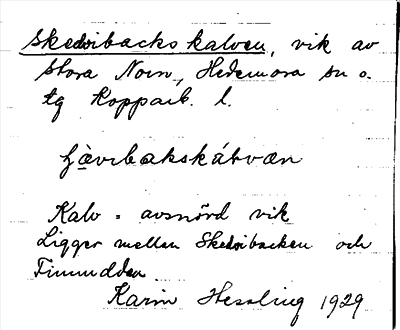 Skedvibackskalven, vik av
Stora Norn, Hedemora sn o.
tg Kopparb. l.
Kalv = avsnörd vik
Ligger mellan Skedvibacken och
Finnudden
Karin Hessling 1929